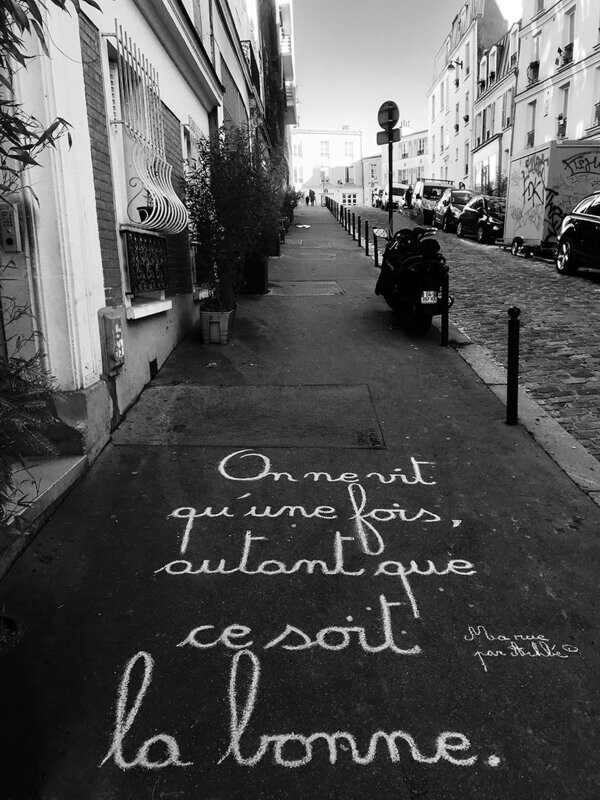 On ne vit
qu'une fois,
autant que
ce soit
la bonne.
Ma rue
par Achbé